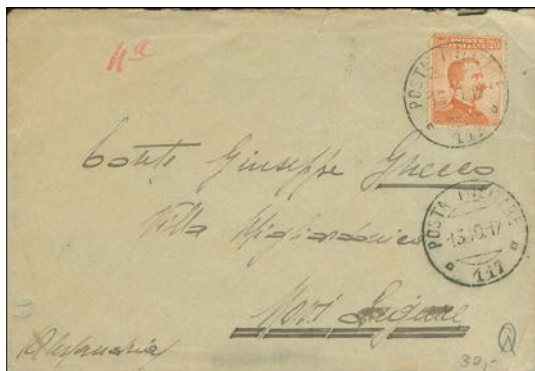 11a
POSTE
ITALIANE
20
POSTA MILITARE
117
Conte Giuseppe Grecco
Villa Migliaronico
POSTA MILITARE
13.10.17
117
Novi Ligure
Alessandria
30,-